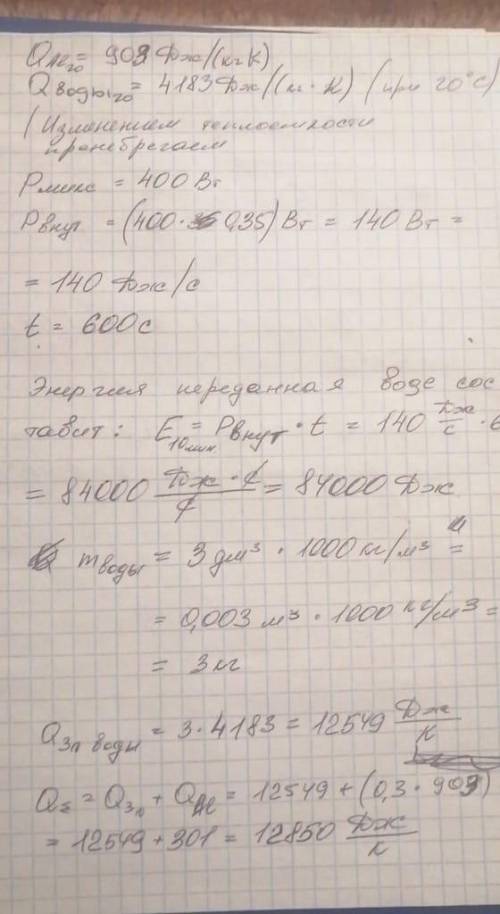 Qле20 = 903 Дж/(кг К)
Qводы20 = 4183 Дж/(кг · К) (при 20°С)
(Изменением теплоемкости
пренебрегаем
Pмикс = 400 Вт
Pвнут = (400 · 0,35) Вт = 140 Вт =
= 140 Дж/с
t = 600 с
Энергия переданная воде сос
тавит: E10мин. = Pвнут · t = 140 Дж/с · 6
= 84000 Дж · с/с = 84000 Дж
mводы = 3 дм³ · 1000 кг/м³ =
= 0,003 м³ · 1000 кг/м³ =
= 3 кг
Q3л воды = 3 · 4183 = 12549 Дж/К
QΣ = Q3л + QAl = 12549 + (0,3 · 903)
= 12549 + 301 = 12850 Дж/К